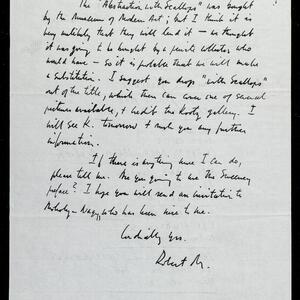 The "Abstraction with Scallops" was bought
by the Museum of Modern Art; but I think it is
very unlikely that they will lend it — we thought
it was going to be bought by a private collector who
would have — so it is probable that we will make
a substitution. I suggest you drop "with Scallops"
out of the title, which then can cover one of several
pictures available, & credit the gallery. I
will see K. tomorrow & send you any further
information.
If there is anything more I can do,
please tell me. Are you going to use the Sweeney
preface? I hope you will send an invitation to
Moholy-Nagy, who has been nice to me.
Cordially yrs.
Robert M.